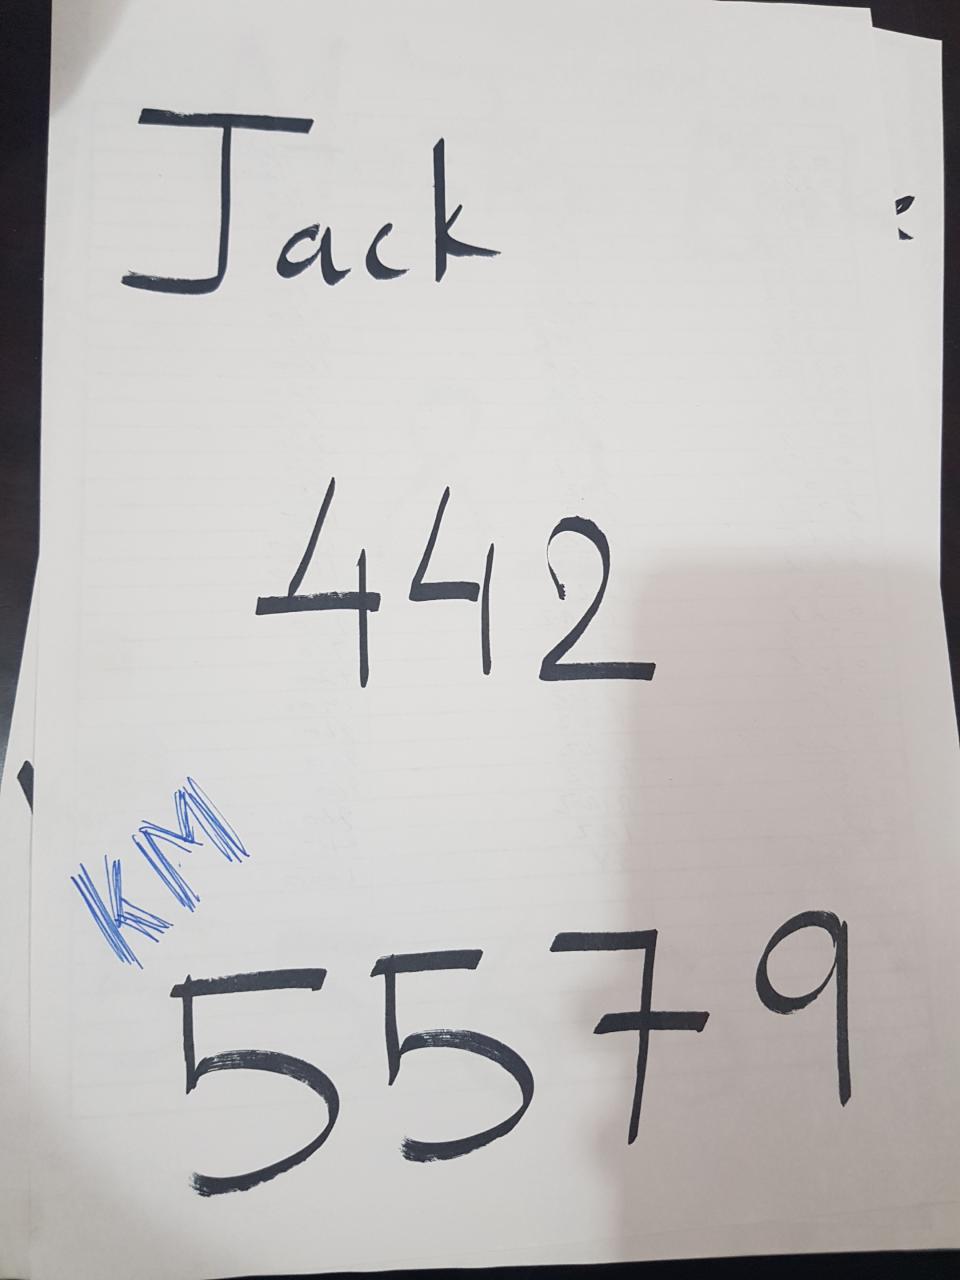 Jack
442
KM
5579